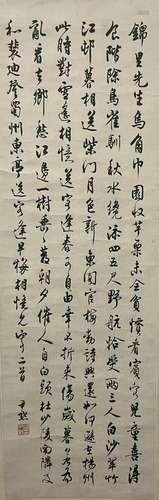 錦里先生烏角巾園收芋栗未全貧慣看賓客兒童喜得
食階除鳥雀馴秋水纔添四五尺野航恰受兩三人白沙翠竹
江邨暮相送柴門月色新東閣官梅動詩興還如何遜在揚州
此時對雪遙相憶送客逢春可自由幸不折來傷歲暮若為
亂看去鄉愁江邊一樹垂垂發朝夕催人自白頭杜少陵南鄰及
和裴迪登蜀州東亭送客逢早梅相憶見寄二首尹默